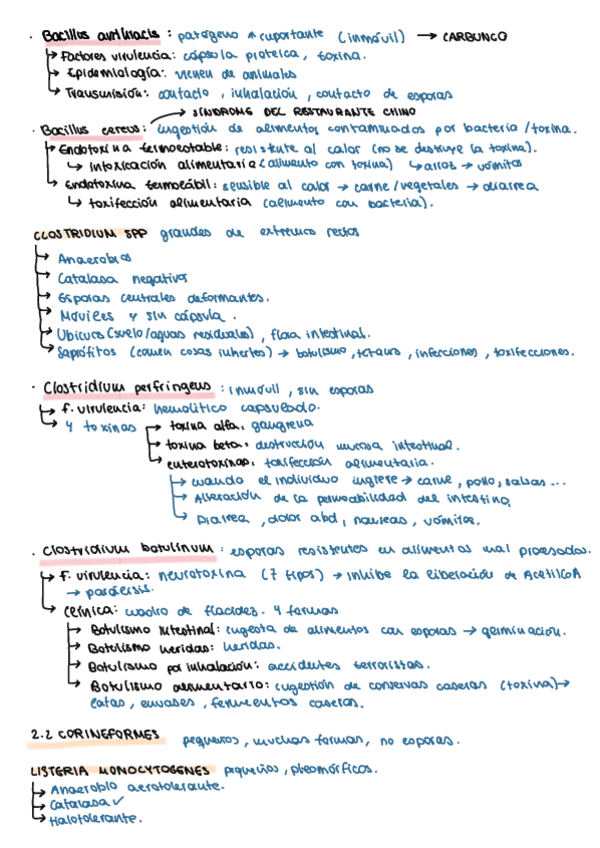 · Bacillus anthracis: patógeno + importante (inmóvil) → CARBUNCO
Factores virulencia: cápsula proteica, toxina.
Epidemiología: vienen de animales
Transmisión: contacto, inhalación, contacto de esporas
→ SÍNDROME DEL RESTAURANTE CHINO
· Bacillus cereus: ingestión de alimentos contaminados por bacteria/toxina.
Endotoxina termoestable: resistente al calor (no se destruye la toxina).
↳ intoxicación alimentaria (alimento con toxina) ↳ arroz → vómitos
Endotoxina termolábil: sensible al calor → carne/vegetales → diarrea
↳ toxifección alimentaria (alimento con bacteria).
CLOSTRIDIUM SPP grandes de extremos rectos
Anaerobios
Catalasa negativos
Esporas centrales deformantes.
Móviles y sin cápsula.
Ubicuos (suelo/aguas residuales), flora intestinal.
Saprófitos (comen cosas inhertes) → botulismo, tétanos, infecciones, toxifecciones.
· Clostridium perfringens: inmóvil, sin esporas
f. virulencia: hemolítico capsulado.
4 toxinas → toxina alfa: gangrena
toxina beta: destrucción mucosa intestinal.
enterotoxinas: toxifección alimentaria.
cuando el individuo ingiere → carne, pollo, salsas...
Alteración de la permeabilidad del intestino,
Diarrea, dolor abd, nauseas, vómitos.
· Clostridium botulinum: esporas resistentes en alimentos mal procesados.
F. virulencia: neurotoxina (7 tipos) → inhibe la liberación de AcetilCoA
→ parálisis.
Clínica: cuadro de flacidez. 4 formas
Botulismo intestinal: ingesta de alimentos con esporas → germinación.
Botulismo heridas: heridas.
Botulismo por inhalación: accidentes terroristas.
Botulismo alimentario: ingestión de conservas caseras (toxina) →
latas, envases, fermentos caseros.
2.2 CORINEFORMES pequeños, muchas formas, no esporas.
LISTERIA MONOCYTOGENES pequeños, pleomórficos.
Anaerobio aerotolerante.
Catalasa ✓
Halotolerante.